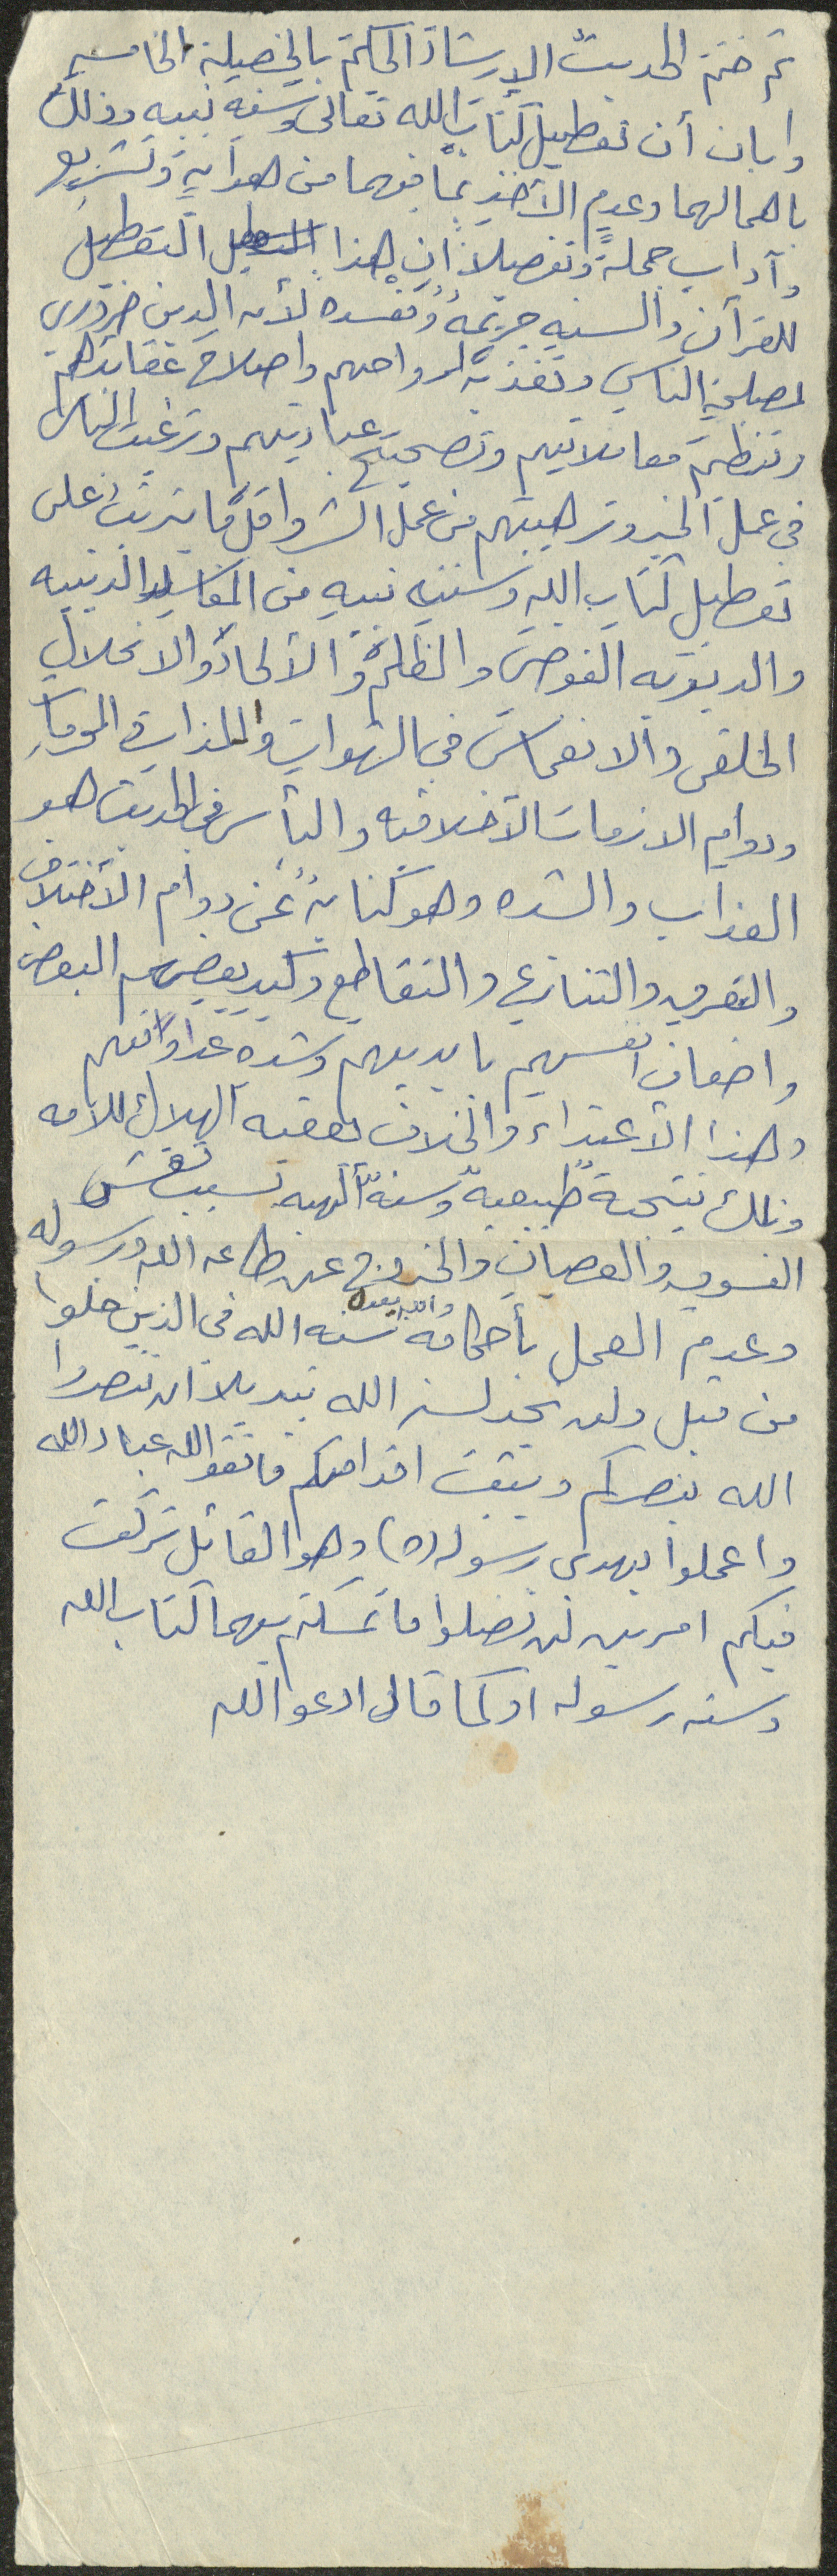 ثم ختم الحديث الإرشاد الحكم بالخصيلة الخامسه
وابان أن تعطيل كتاب الله تعالى وسنة نبيه وذلك
باهمالهما وعدم الأخذ بما فيهما من هداية وتشريع
وآداب جملةً وتفصيلاً ان هذا التعطيل
للقرآن والسنه جريمةٌ ومفسده لأن الدين ضروري
لمصلحة الناس وتغذية لأرواحهم واصلاح عقائدهم
وتنظيم معاملاتهم وتصحيح عباداتهم وترغيب الناس
في عمل الخير وترهيبهم من عمل الشر واقل ما يترتب على
تعطيل كتاب الله وسنة نبيه من المفاسد الدينيه
والدنيويه الفوضى والظلم والألحاد والانحلال
الخلقي والانغماس في الشهوات والملذات المحرمات
ودوام الازمات الأخلاقيه والبأس في الحديث هو
العذاب والشده وهو كنايةٌ عن دوام الأختلاف
والتفرق والتنازع والتقاطع وكيد بعضهم البعض
واضعاف انفسهم بايديهم وشدة عداواتهم
وهذا الأعتداء والخلاف يعقبه الهلاك للامه
وتلك نتيجة طبيعيةٌ وسنةٌ ألهيه تسبب تفشي
الفسوق والعصيان والخروج عن طاعة الله ورسوله
وعدم العمل بأحكامه والله يقول سنه الله في الذين خلوا
من قبل ولن تجد لسنة الله تبديلا ان تنصروا
الله ينصركم ويثبت اقدامكم فاتقوا الله عباد الله
واعملوا بهدي رسوله (ص) وهو القائل تركت
فيكم امرين لن تضلوا ما تمسكتم بهما كتاب الله
وسنة رسوله او كما قال ادعو الله